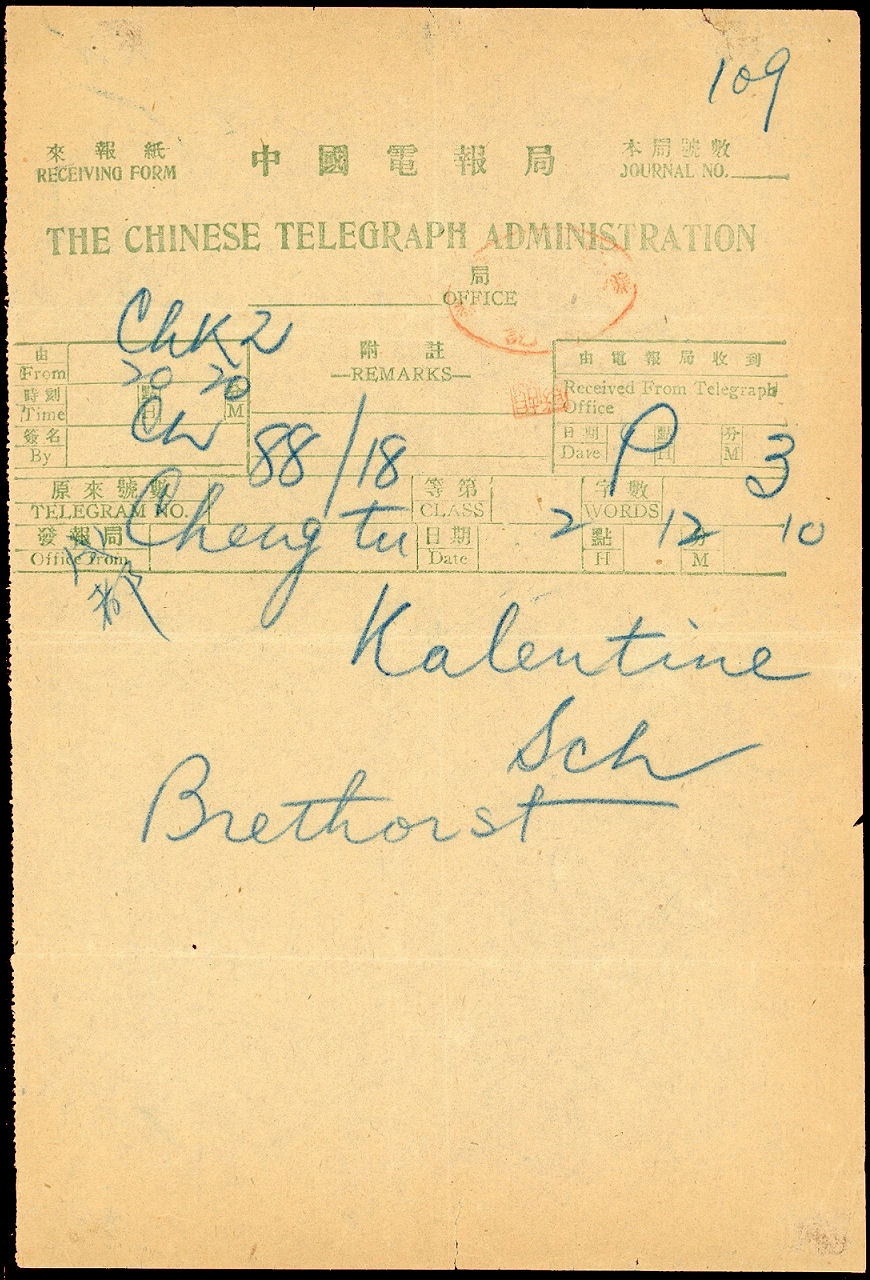 109
來報紙 中國電報局 本局號數
RECEIVING FORM JOURNAL NO.
THE CHINESE TELEGRAPH ADMINISTRATION
局
OFFICE
ChK2
由 附註 由電報局收到
From —REMARKS—
20 20
時刻 點 Received From Telegraph
Time H M Office
Ch
簽名 日期 點 分
By Date H M
88/18 P 3
原來號數 等第 字數
TELEGRAM NO. CLASS WORDS
Chengtu 2 12 10
發報局 日期 點
Office from Date H M
都
Kalentine
Sch
Brethorst